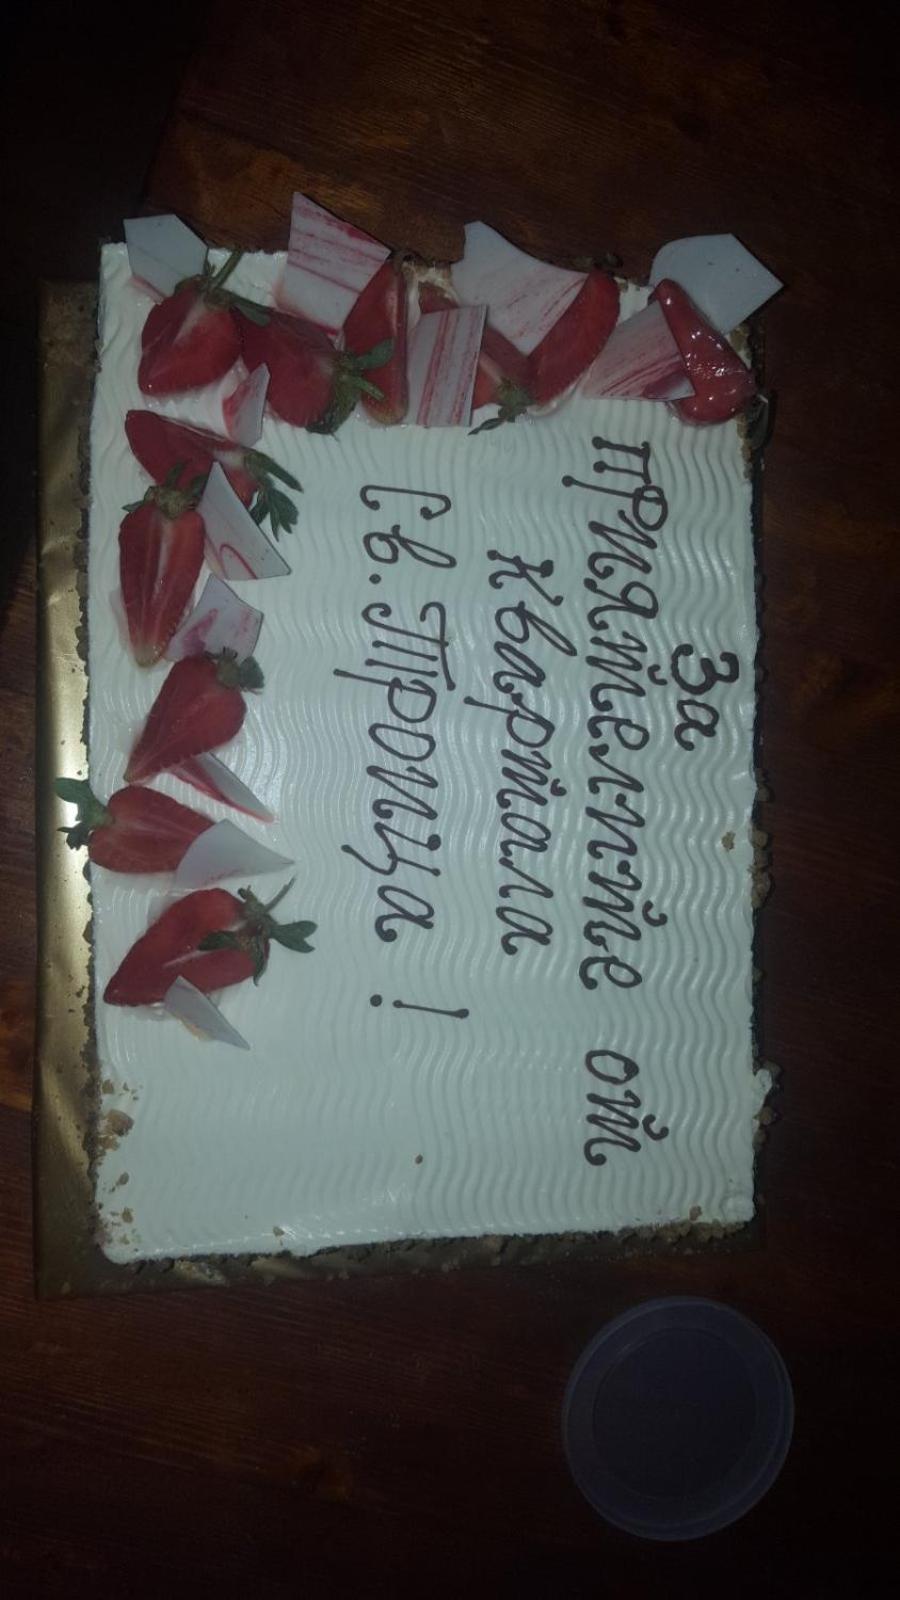 За
приятелите от
квартала
Св. Троица !